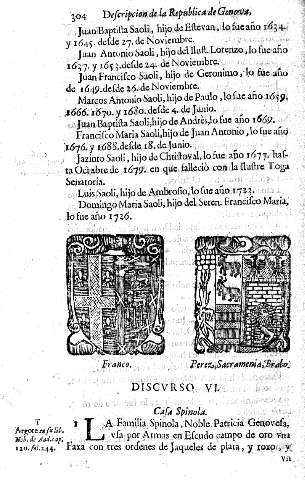 304 Descripcion de la Republica de Genova.
Juan Baptista Saoli, hijo de Estevan, lo fue año 1634.
y 1645. desde 27. de Noviembre.
Juan Antonio Saoli, hijo del Ilust. Lorenzo, lo fue año
1637. y 1653. desde 24. de Noviembre.
Juan Francisco Saoli, hijo de Geronimo, lo fue año
de 1649. desde 26. de Noviembre.
Marcos Antonio Saoli, hijo de Paulo, lo fue año 1659.
1666. 1670. y 1680. desde 4. de Junio.
Juan Baptista Saoli, hijo de Andrès, lo fue año 1669.
Francisco Maria Saoli, hijo de Juan Antonio, lo fue año
1676. y 1688. desde 18. de Junio.
Jazinto Saoli, hijo de Christoval, lo fue año 1677. has-
ta Octubre de 1679. en que falleciò con la Ilustre Toga
Senatoria.
Luis Saoli, hijo de Ambrosio, lo fue año 1723.
Domingo Maria Saoli, hijo del Seren. Francisco Maria,
lo fue año 1726.
Franco.
Perez, Sacramenia, Brabo.
DISCURSO VI.
Casa Spinola.
1 LA Familia Spinola, Noble, Patricia Genovesa,
usa por Armas en Escudo campo de oro una
Faxa con tres ordenes de Jaqueles de plata, y roxo, y
un
Argote en su lib.
Nob. de And. cap.
120. fol. 244.